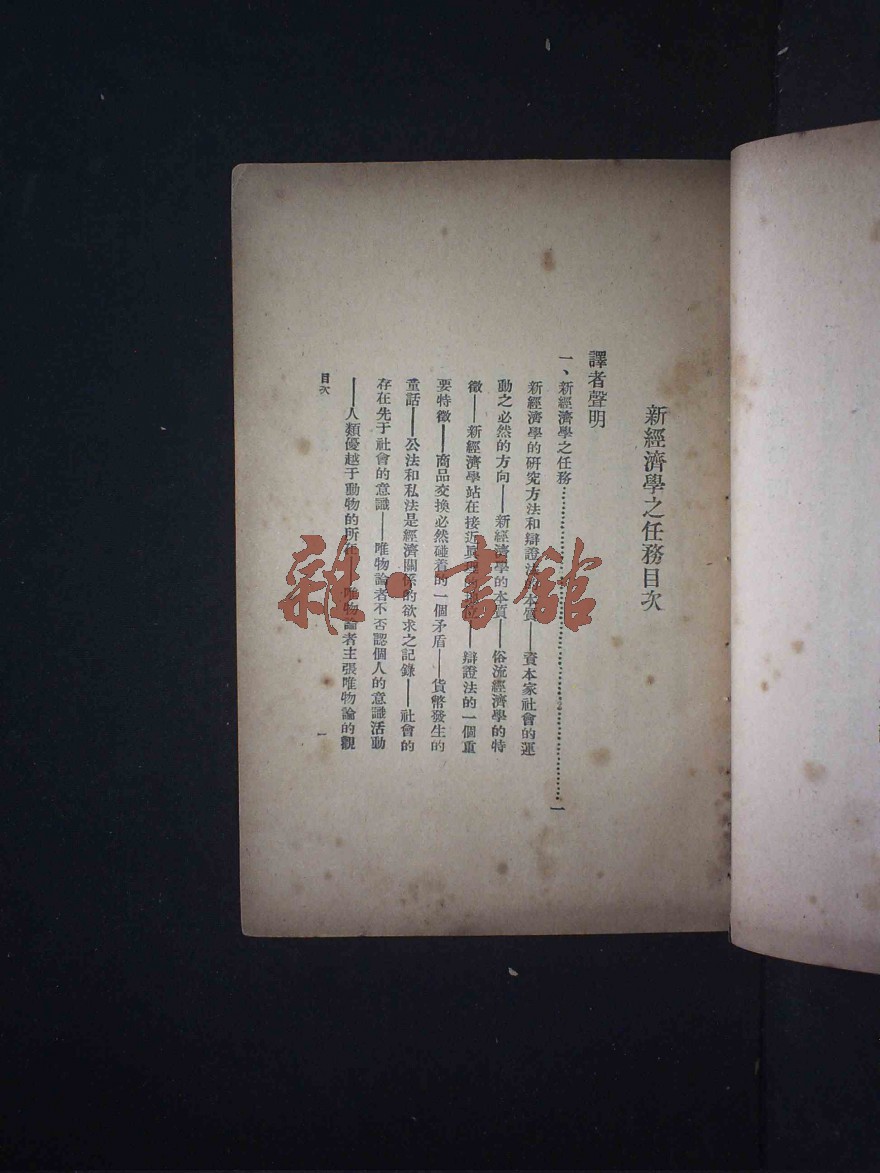 新經濟學之任務目次
譯者聲明
一、新經濟學之任務……………………一
新經濟學的研究方法和辯證法的本質——資本家社會的運
動之必然的方向——新經濟學的本質——俗流經濟學的特
徵——新經濟學站在接近眞理的地位——辯證法的一個重
要特徵——商品交換必然碰着的一個矛盾——貨幣發生的
童話——公法和私法是經濟關係的欲求之記錄——社會的
存在先于社會的意識——唯物論者不否認個人的意識活動
——人類優越于動物的所在——唯物論者主張唯物論的觀
目次
一
雜·書館